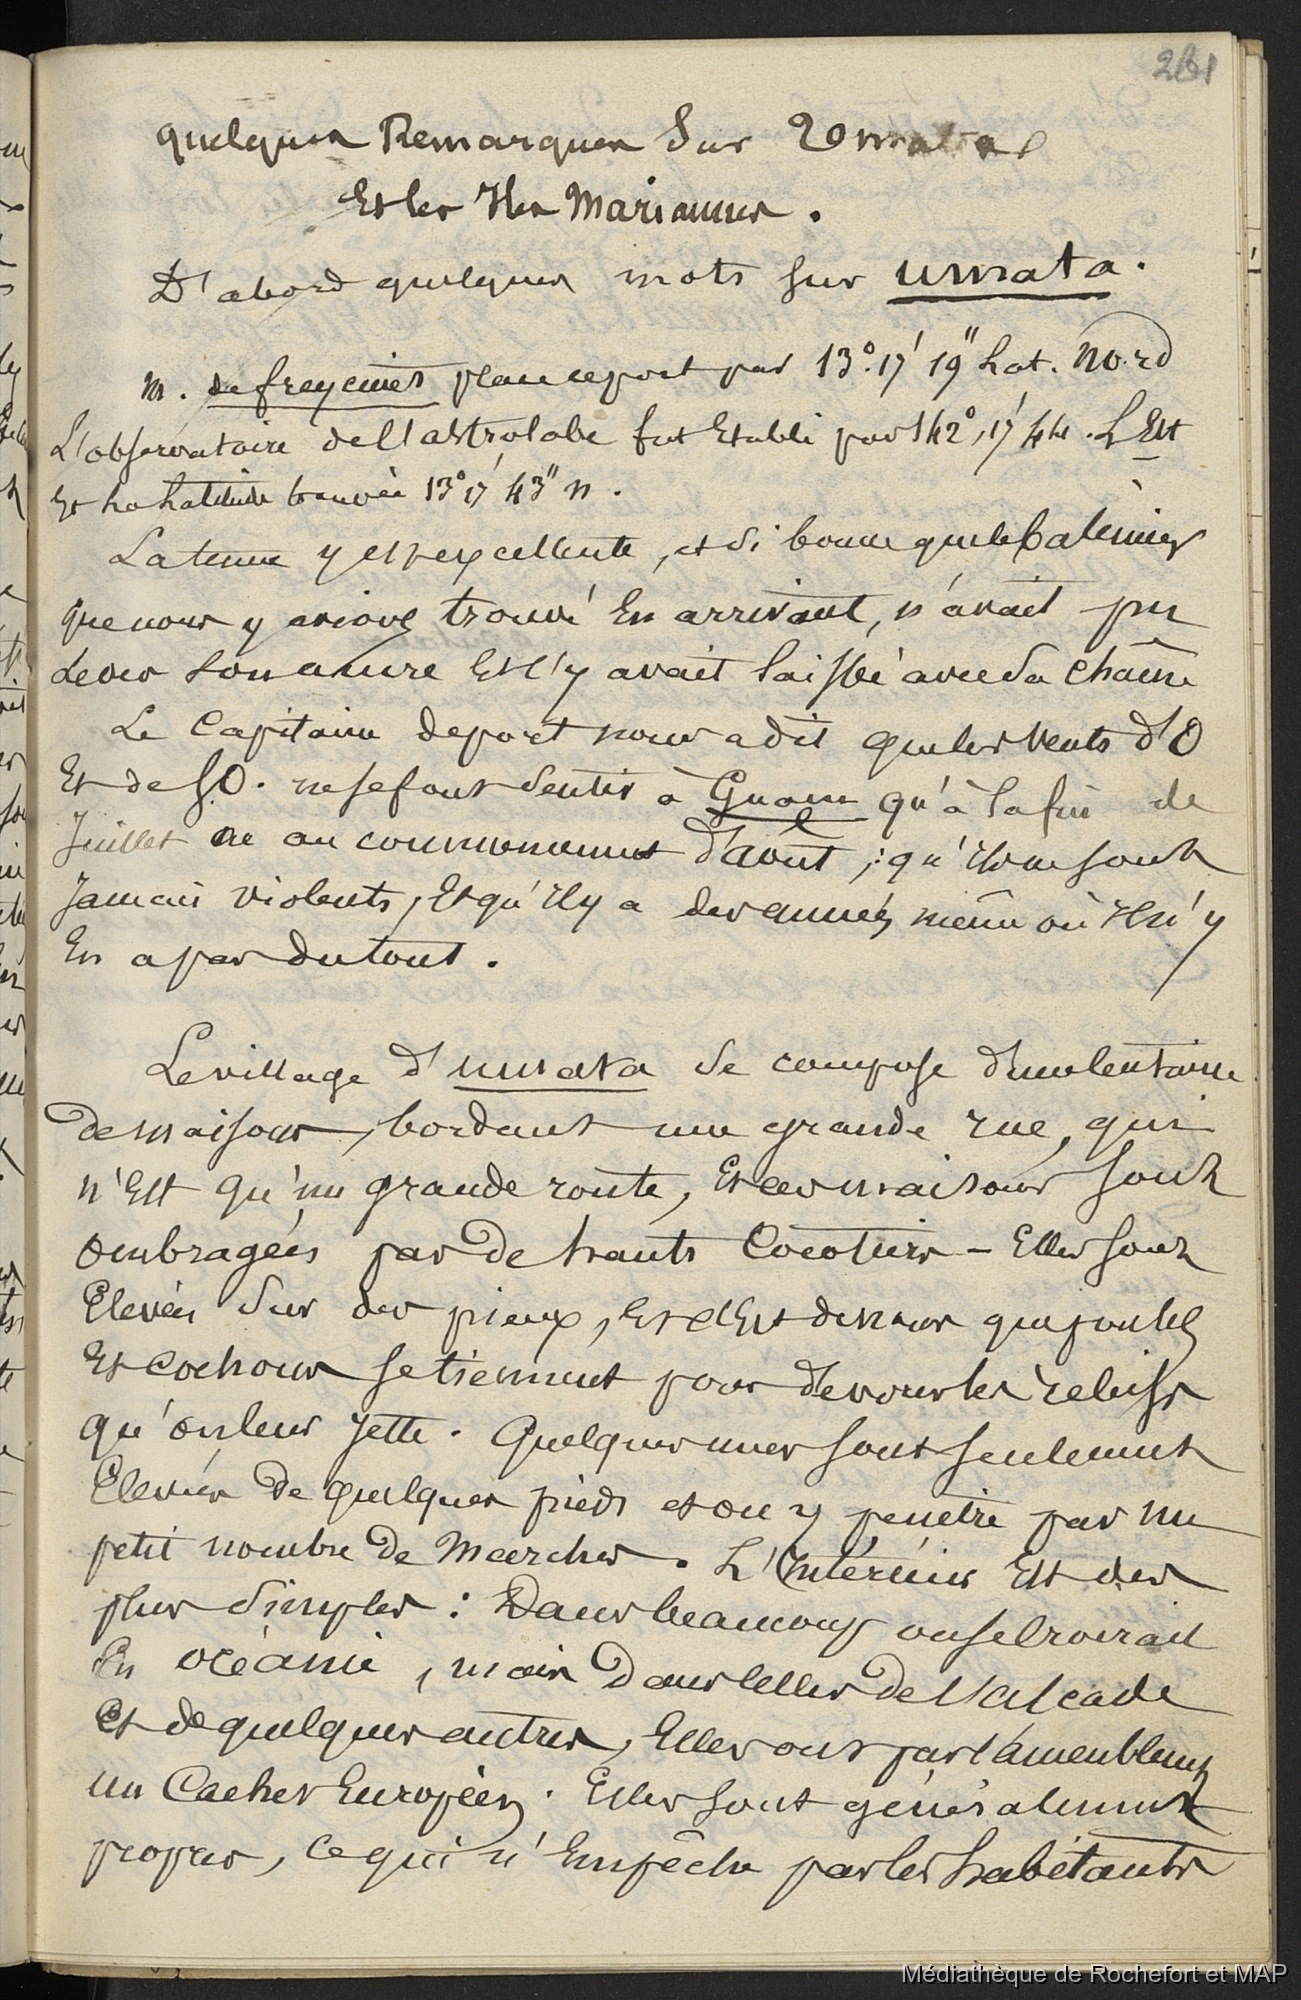 261
quelques Remarques Sur Umata
Et les Iles Mariannes.
D'abord quelques mots sur umata.
M. de freycinet place ce port par 13° 17' 19" Lat. Nord
L'observatoire de l'astrolabe fut Etabli par 142°, 17' 44. L. Est
Et La Latitude trouvée 13° 17' 43" N.
La tenue y est excellente, et si bonne que le Baleinier
que nous y avions trouvé En arrivant, n'avait pu
Lever Son ancre Et l'y avait laissée avec Sa Chaîne
Le Capitaine de port nous a dit que les Vents d'O
Et de S.O. ne se font Sentir à Guam qu'à la fin de
Juillet ou au commencement d'août ; qu'ils ne sont
Jamais violents, Et qu'il y a des années même où Il n'y
En a pas du tout.
Le village d'umata Se compose d'une centaine
de maisons, bordant une grande rue, qui
n'Est qu'une grande route, Et ces maisons sont
ombragées par de hauts Cocotiers - Elles sont
Elevées Sur des pieux, Et c'Est dessous que poules
Et Cochons se tiennent pour dévorer les rebuts
qu'on leur Jette. Quelques unes sont seulement
Elevées de quelques pieds et on y penètre par un
petit nombre de Marches. L'Intérieur Est des
plus Simples : Dans beaucoup on se croirait
En océanie, mais Dans Celles de l'alcade
et de quelques autres, Elles ont par l'ameublement
un Cachet Européen. Elles sont généralement
propres, Ce qui n'Empêche pas les habitants
Médiathèque de Rochefort et MAP